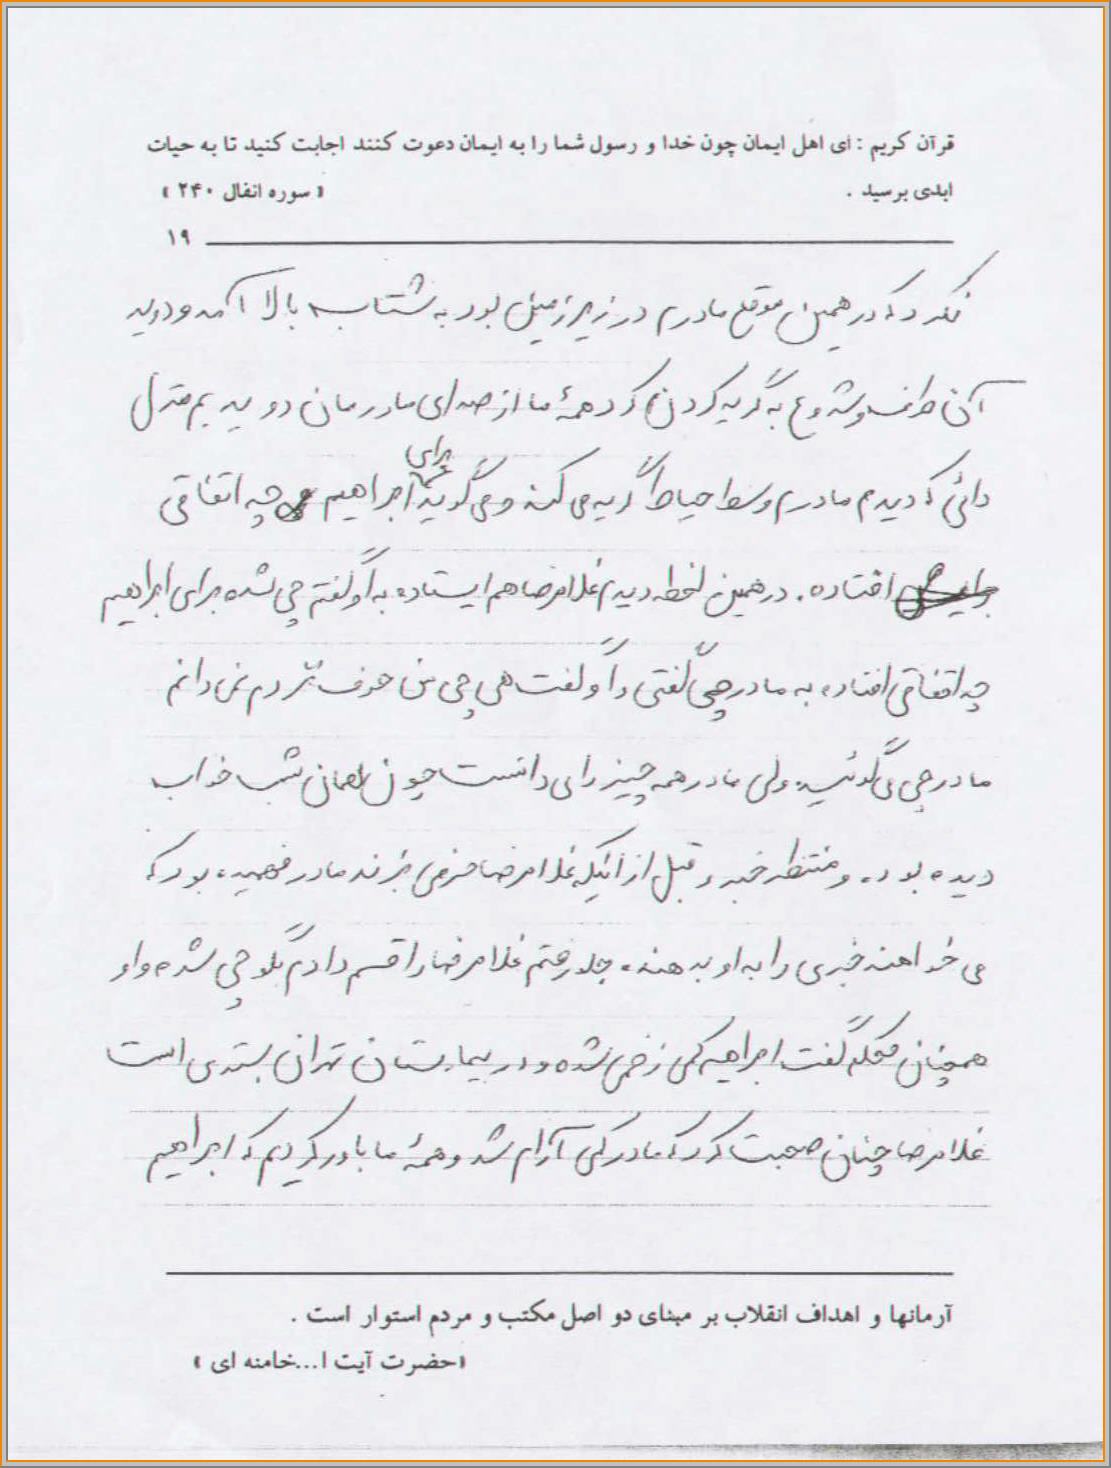 قرآن کریم : ای اهل ایمان چون خدا و رسول شما را به ایمان دعوت کنند اجابت کنید تا به حیات
ابدی برسید . « سوره انفال ۲۴۰ »
۱۹
نکرد که در همین موقع مادرم در زیرزمین بود به شتاب بالا آمد و دوید
آن طرف و شروع به گریه کردن کرد همهٔ ما از صدای مادرمان دویدیم منزل
دائی که دیدم مادرم وسط حیاط گریه می کند و می گوید برای ابراهیم چه اتفاقی
افتاده . در همین لحظه دیدم غلامرضا هم ایستاده به او گفتم چی شده برای ابراهیم
چه اتفاقی افتاده به مادر چی گفتی و او گفت هی چی من حرف نزدم نمی دانم
مادر چی می گوئید ولی مادر همه چیز را می دانست چون همان شب خواب
دیده بود و منتظر خبر و قبل از اینکه غلامرضا حرفی بزند مادر فهمیده بود که
می خواهند خبری را به او بدهند . جلو رفتم غلامرضا را قسم دادم بگو چی شده و او
همچنان گفت ابراهیم کمی زخمی شده و در بیمارستان تهران بستری است
غلامرضا چنان صحبت کرد که مادر کمی آرام شد و همهٔ ما باور کردیم که ابراهیم
آرمانها و اهداف انقلاب بر مبنای دو اصل مکتب و مردم استوار است .
«حضرت آیت ا...خامنه ای »